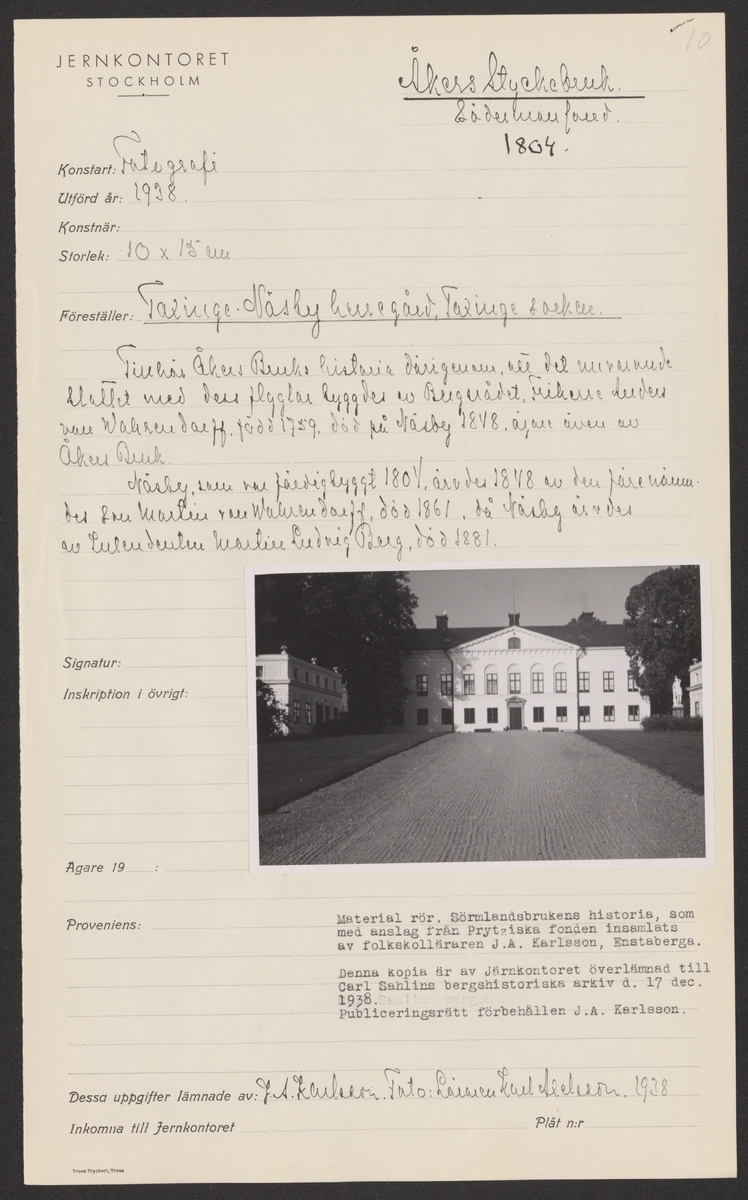 10
JERNKONTORET
STOCKHOLM
Åkers Styckebruk.
Södermanland.
1804.
Konstart: Fotografi
Utförd år: 1938.
Konstnär:
Storlek: 10 x 15 cm
Föreställer: Taxinge-Näsby herregård, Taxinge socken.
Tillhör Åkers Bruks historia därigenom, att det nuvarande
slottet med dess flyglar byggdes av Bergsrådet, Friherre Anders
von Wahrendorff, född 1759, död på Näsby 1848, ägare även av
Åkers Bruk.
Näsby, som var färdigbyggt 1804, ärvdes 1848 av den förenämn-
des son Martin von Wahrendorff, död 1861, då Näsby ärvdes
av Intendenten Martin Ludvig Berg, död 1881.
Signatur:
Inskription i övrigt:
Ägare 19 :
Proveniens:
Material rör. Sörmlandsbrukens historia, som
med anslag från Prytziska fonden insamlats
av folkskolläraren J.A. Karlsson, Enstaberga.
Denna kopia är av Järnkontoret överlämnad till
Carl Sahlins bergshistoriska arkiv d. 17 dec.
1938.
Publiceringsrätt förbehållen J.A. Karlsson.
Dessa uppgifter lämnade av: J.A. Karlsson. Foto: Karl Axelsson, 1938
Inkomna till Jernkontoret
Plåt n:r
Trosa Tryckeri, Trosa